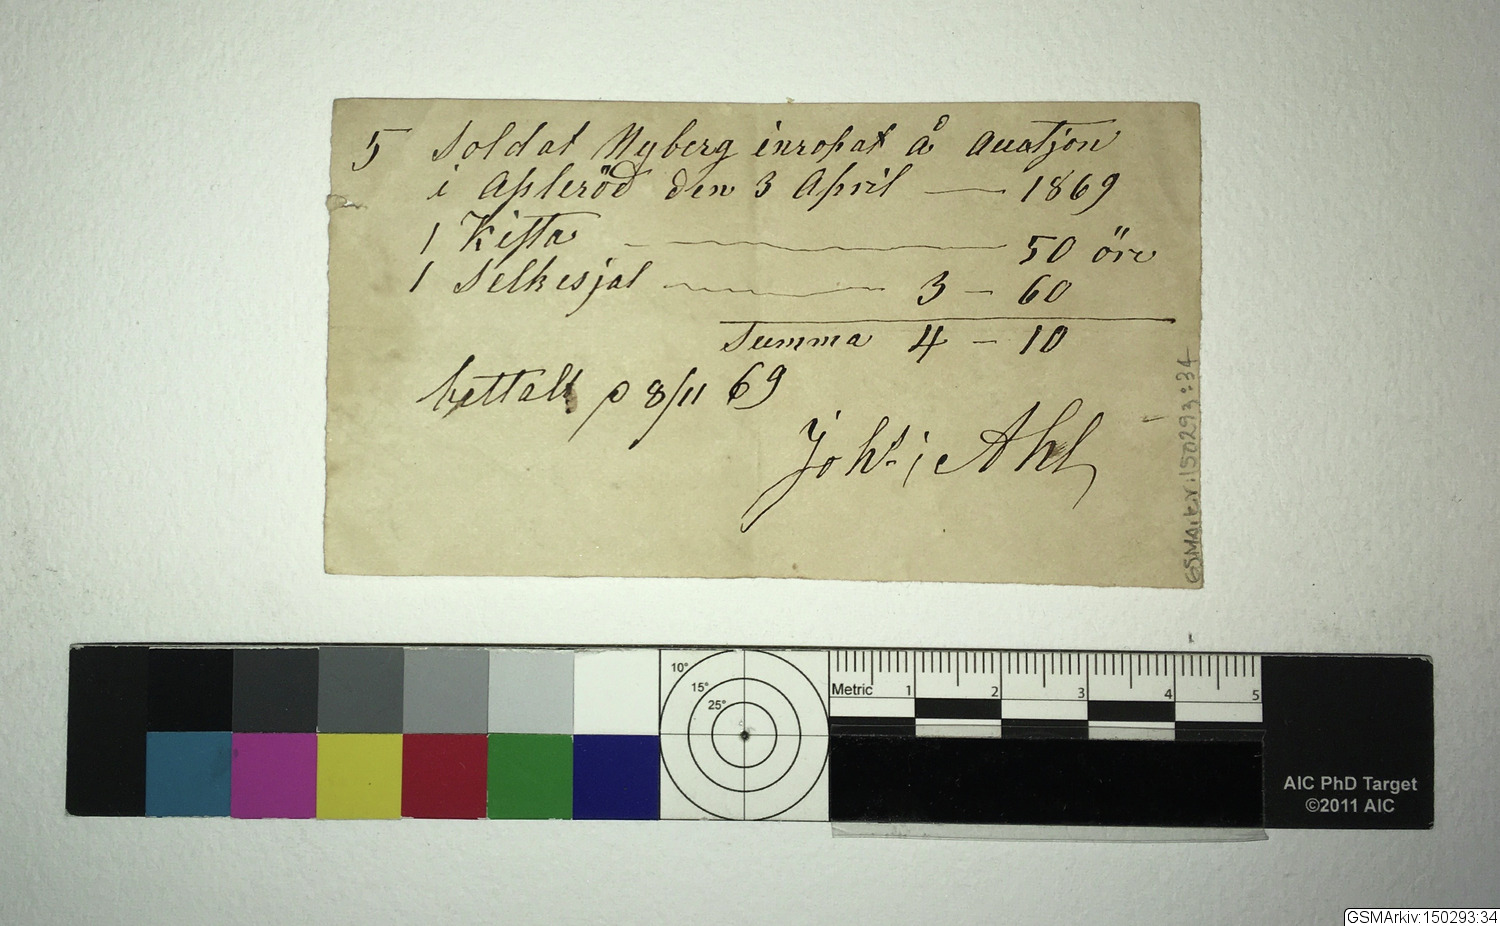 5 Soldat Nyberg inropat å Auatjon
i Apleröd den 3 April — 1869
1 Kista — 50 öre
1 Silkesjal — 3 — 60
Summa 4 — 10
bettalt p 8/11 69
Johs. i Ahl
GSMArkiv:150293:34
10°
15°
25°
Metric 1 2 3 4 5
AIC PhD Target
©2011 AIC
GSMArkiv:150293:34